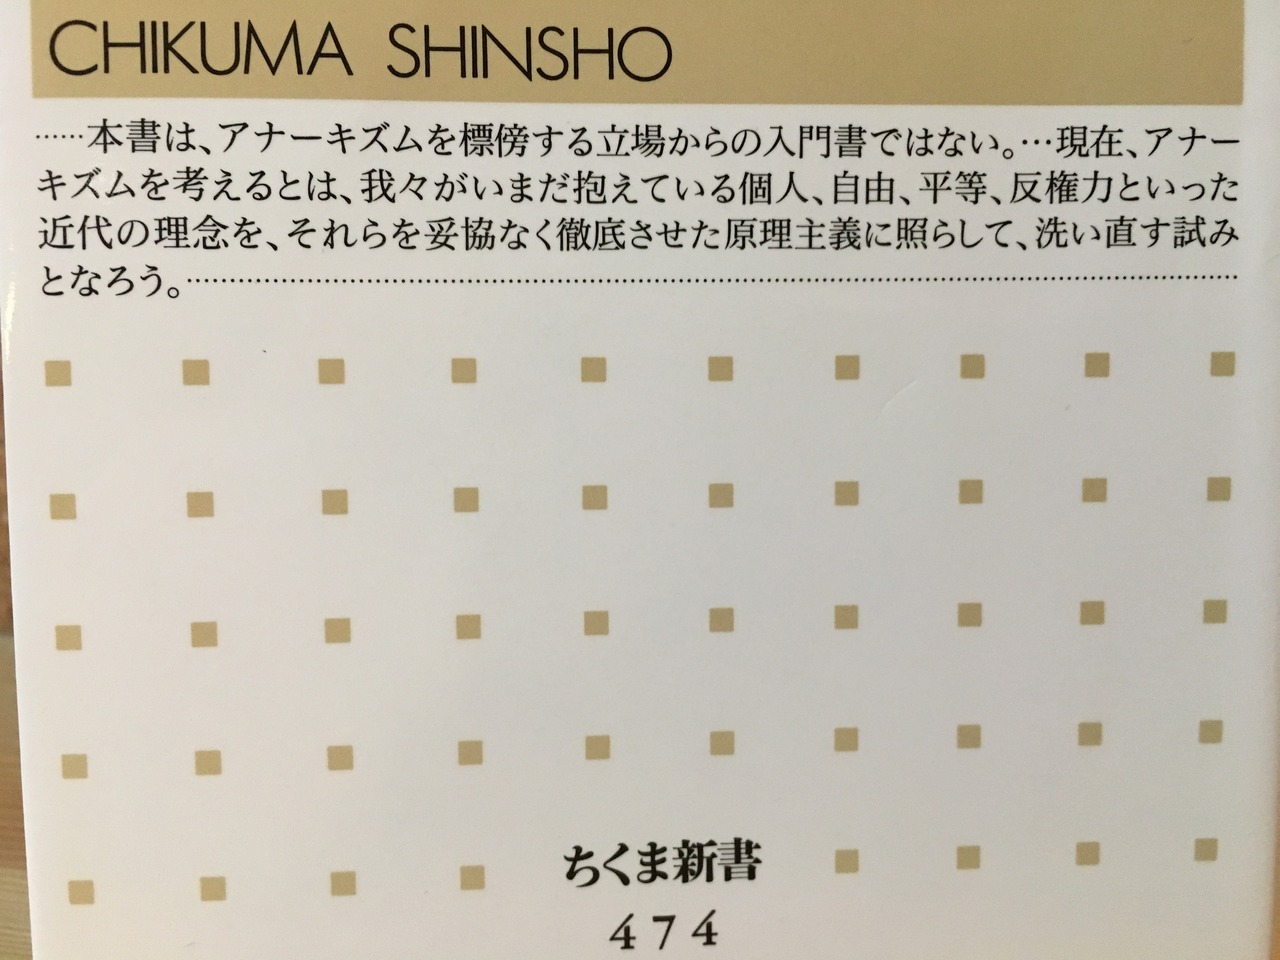 CHIKUMA SHINSHO
……本書は、アナーキズムを標傍する立場からの入門書ではない。…現在、アナー
キズムを考えるとは、我々がいまだ抱えている個人、自由、平等、反権力といった
近代の理念を、それらを妥協なく徹底させた原理主義に照らして、洗い直す試み
となろう。……………………………………………………………………
ちくま新書
474